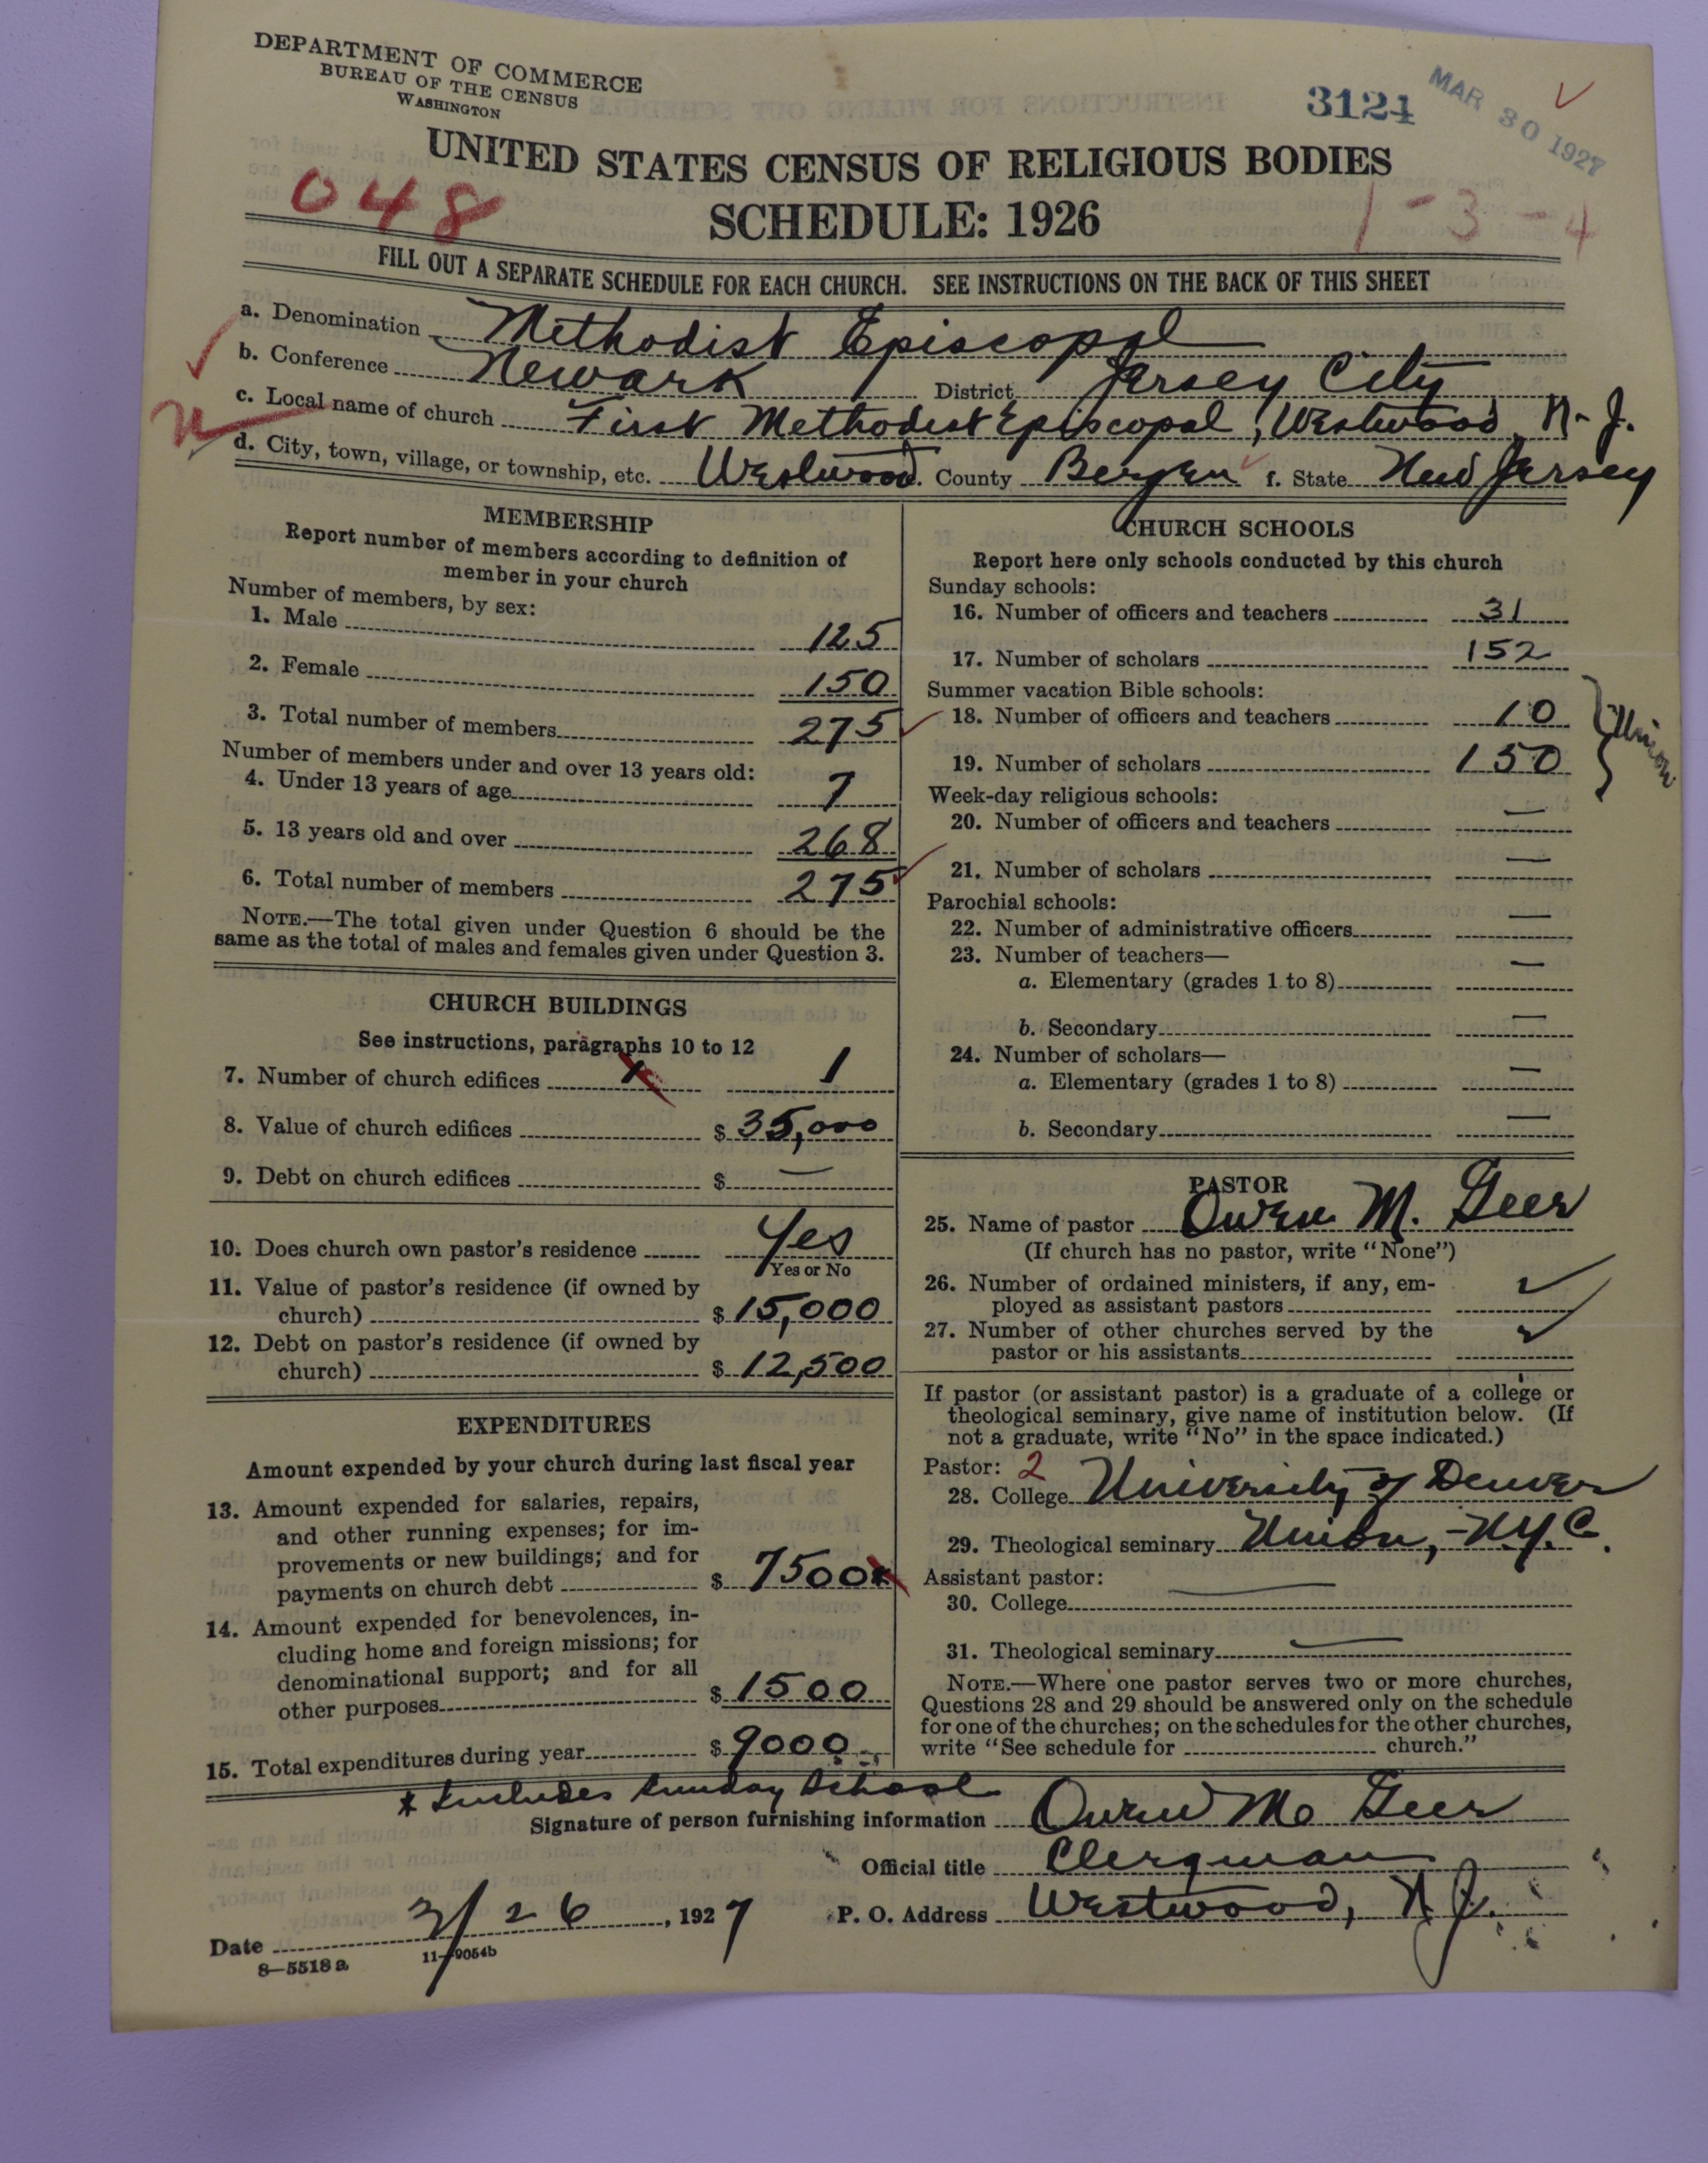 DEPARTMENT OF COMMERCE
BUREAU OF THE CENSUS
WASHINGTON
3124
MAR 30 1927
UNITED STATES CENSUS OF RELIGIOUS BODIES
048
SCHEDULE: 1926
1-3-4
FILL OUT A SEPARATE SCHEDULE FOR EACH CHURCH. SEE INSTRUCTIONS ON THE BACK OF THIS SHEET
a. Denomination Methodist Episcopal
b. Conference Newark District Jersey City
c. Local name of church First Methodist Episcopal, Westwood, N.J.
d. City, town, village, or township, etc. Westwood. County Bergen f. State New Jersey
MEMBERSHIP
Report number of members according to definition of
member in your church
Number of members, by sex:
1. Male 125
2. Female 150
3. Total number of members 275
Number of members under and over 13 years old:
4. Under 13 years of age 7
5. 13 years old and over 268
6. Total number of members 275
NOTE.—The total given under Question 6 should be the
same as the total of males and females given under Question 3.
CHURCH BUILDINGS
See instructions, paragraphs 10 to 12
7. Number of church edifices 1
8. Value of church edifices $ 35,000
9. Debt on church edifices $ —
10. Does church own pastor's residence Yes
Yes or No
11. Value of pastor's residence (if owned by
church) $ 15,000
12. Debt on pastor's residence (if owned by
church) $ 12,500
EXPENDITURES
Amount expended by your church during last fiscal year
13. Amount expended for salaries, repairs,
and other running expenses; for im-
provements or new buildings; and for
payments on church debt $ 7500*
14. Amount expended for benevolences, in-
cluding home and foreign missions; for
denominational support; and for all
other purposes $ 1500
15. Total expenditures during year $ 9000
* Includes Sunday School
CHURCH SCHOOLS
Report here only schools conducted by this church
Sunday schools:
16. Number of officers and teachers 31
17. Number of scholars 152
Summer vacation Bible schools:
18. Number of officers and teachers 10
19. Number of scholars 150
Union
Week-day religious schools:
20. Number of officers and teachers —
21. Number of scholars —
Parochial schools:
22. Number of administrative officers —
23. Number of teachers—
a. Elementary (grades 1 to 8) —
b. Secondary —
24. Number of scholars—
a. Elementary (grades 1 to 8) —
b. Secondary —
PASTOR
25. Name of pastor Owen M. Geer
(If church has no pastor, write "None")
26. Number of ordained ministers, if any, em-
ployed as assistant pastors ✓
27. Number of other churches served by the
pastor or his assistants ✓
If pastor (or assistant pastor) is a graduate of a college or
theological seminary, give name of institution below. (If
not a graduate, write "No" in the space indicated.)
Pastor: 2
28. College University of Denver
29. Theological seminary Union, - N.Y.C.
Assistant pastor:
30. College —
31. Theological seminary —
NOTE.—Where one pastor serves two or more churches,
Questions 28 and 29 should be answered only on the schedule
for one of the churches; on the schedules for the other churches,
write "See schedule for church."
Signature of person furnishing information Owen M. Geer
Official title Clergyman
Date 3/26, 1927 P. O. Address Westwood, N.J.
8—5518 a 11—9054b